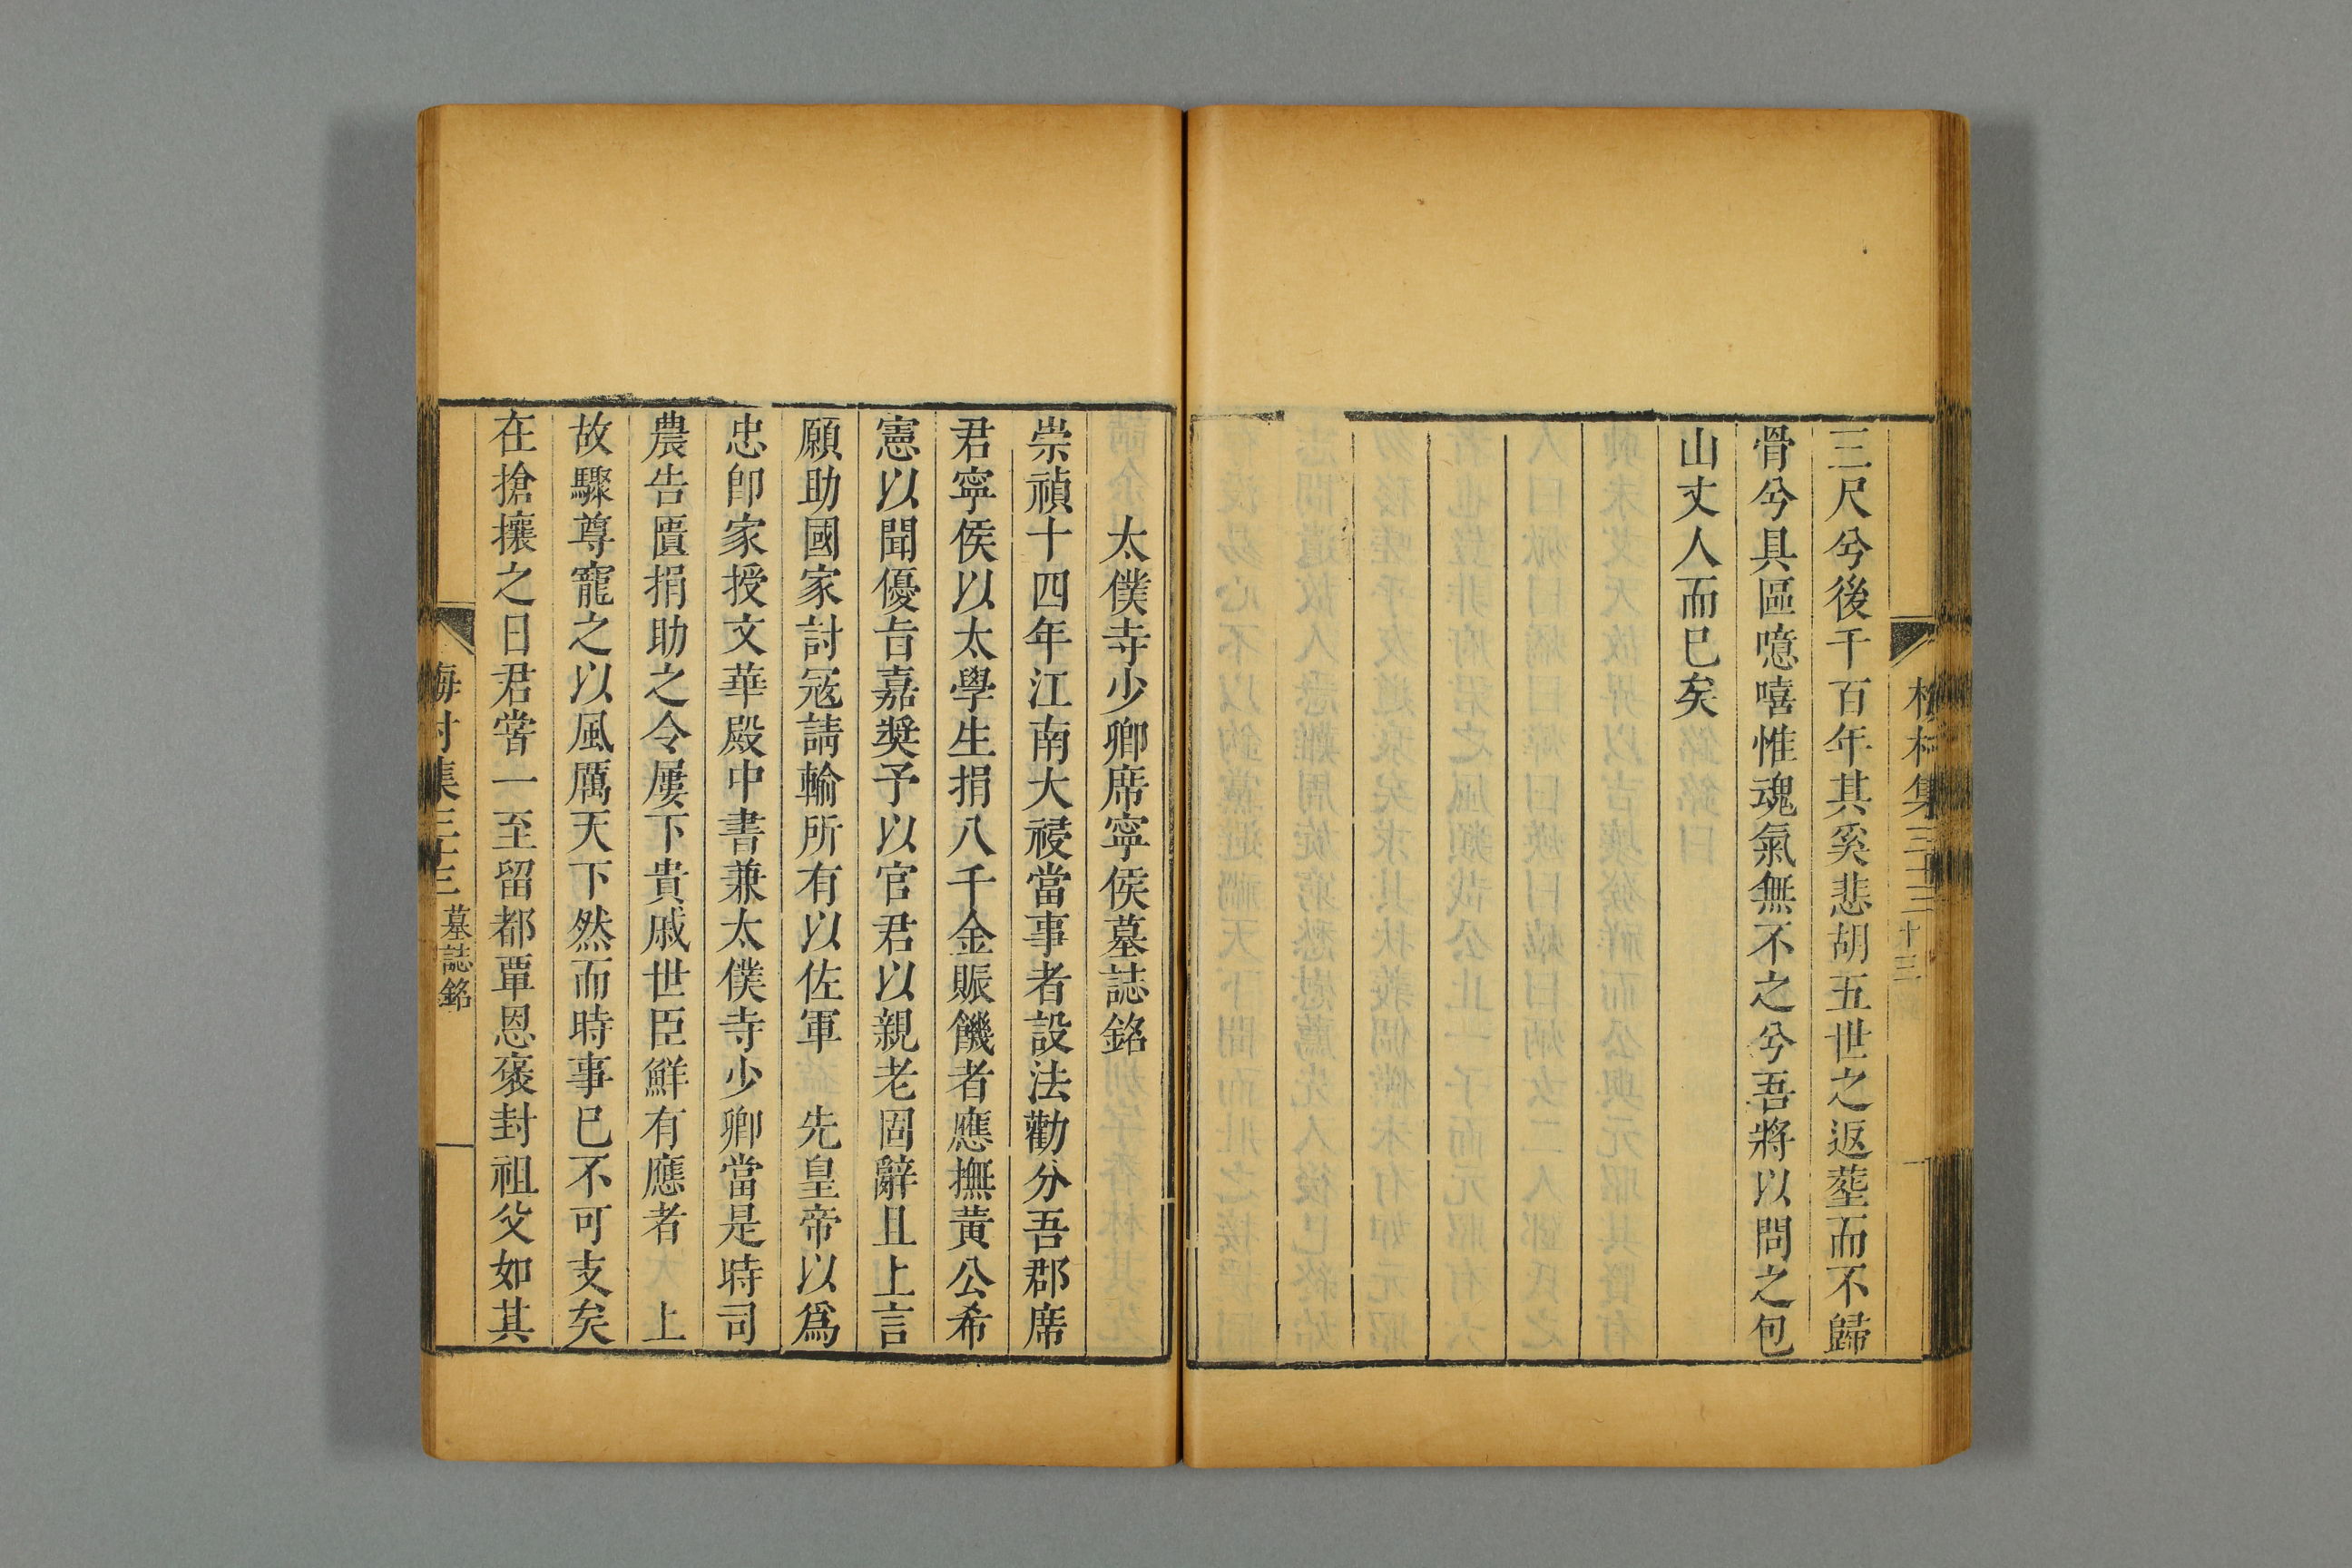 三尺兮後千百年其奚悲胡五世之返塟而不歸
骨兮具區噫嘻惟魂氣無不之兮吾將以問之包
山丈人而已矣
太僕寺少卿席寧侯墓誌銘
崇禎十四年江南大祲當事者設法勸分吾郡席
君寧侯以太學生捐八千金賑饑者應撫黃公希
憲以聞優旨嘉奬予以官君以親老固辭且上言
願助國家討冦請輸所有以佐軍　先皇帝以爲
忠卽家授文華殿中書兼太僕寺少卿當是時司
農告匱捐助之令屢下貴戚世臣鮮有應者　上
故驟尊寵之以風厲天下然而時事已不可支矣
在搶攘之日君嘗一至留都覃恩褒封祖父如其
梅村集三十三 墓誌銘